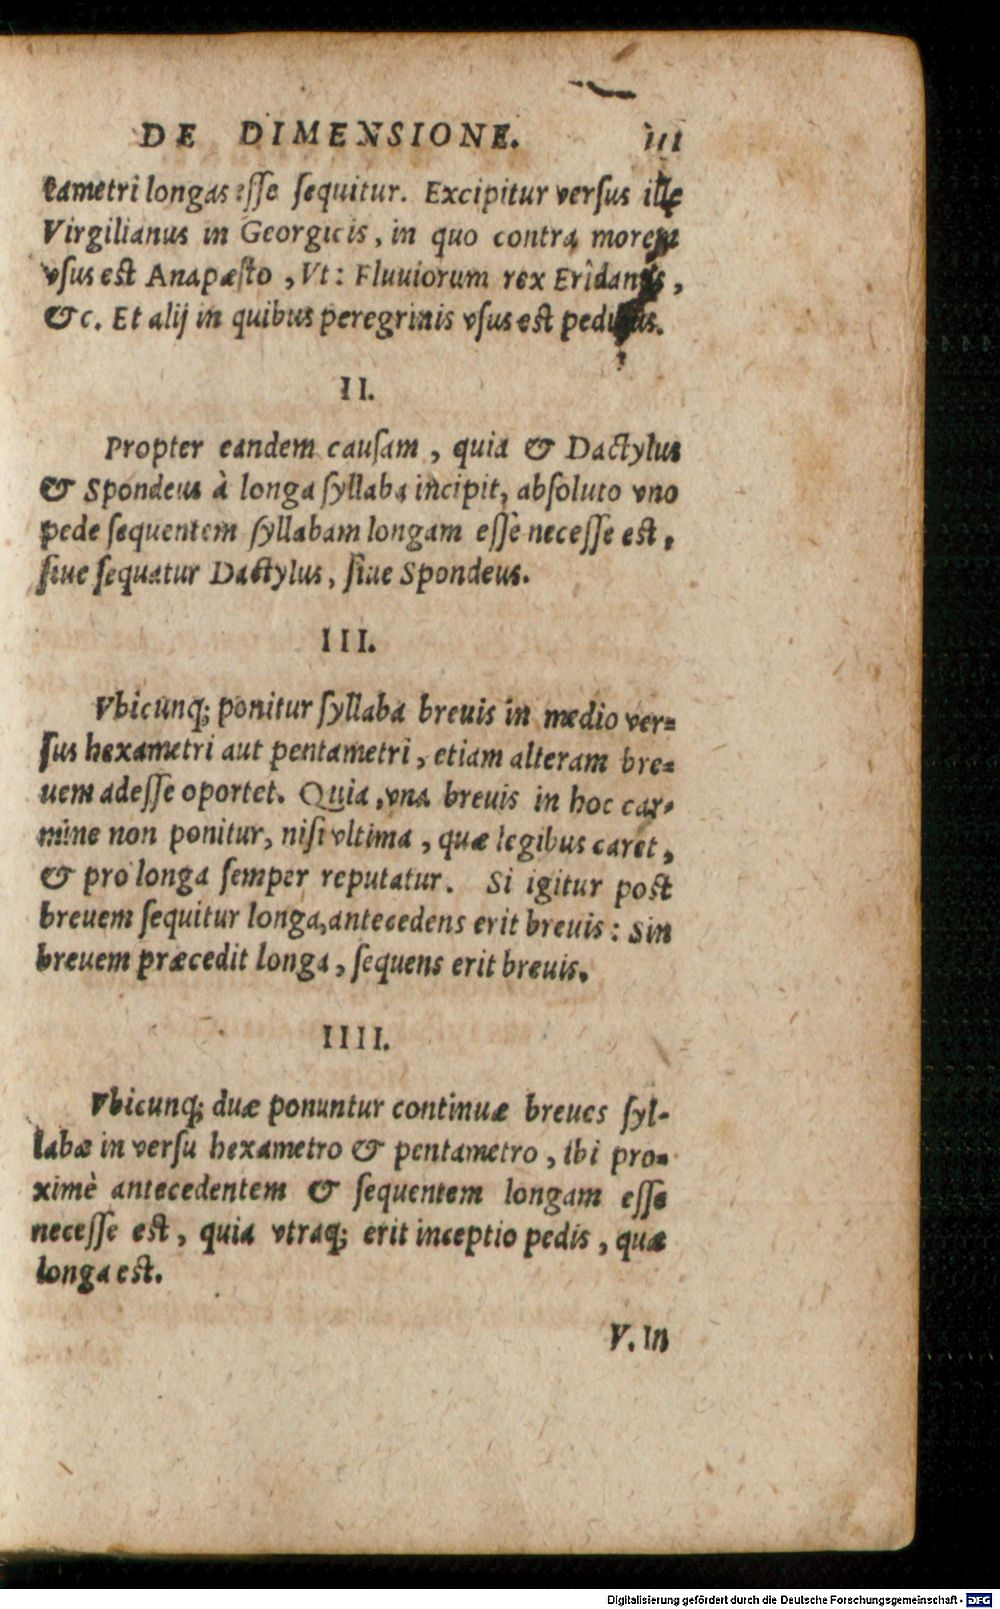 DE DIMENSIONE. 111
tametri longas esse sequitur. Excipitur versus ille
Virgilianus in Georgicis, in quo contra morem
vsus est Anapæsto, Vt: Fluuiorum rex Eridanus,
& c. Et alij in quibus peregrinis vsus est pedibus.
II.
Propter eandem causam, quia & Dactylus
& Spondeus à longa syllaba incipit, absoluto vno
pede sequentem syllabam longam essè necesse est,
siue sequatur Dactylus, siue Spondeus.
III.
Vbicunq; ponitur syllaba breuis in medio ver=
sus hexametri aut pentametri, etiam alteram bre=
uem adesse oportet. Quia, vna breuis in hoc car-
mine non ponitur, nisi vltima, quæ legibus caret,
& pro longa semper reputatur. Si igitur post
breuem sequitur longa, antecedens erit breuis: Sin
breuem præcedit longa, sequens erit breuis.
IIII.
Vbicunq; duæ ponuntur continuæ breues syl-
labæ in versu hexametro & pentametro, ibi pro=
ximè antecedentem & sequentem longam esse
necesse est, quia vtraq; erit inceptio pedis, quæ
longa est.
V. In
Digitalisierung gefördert durch die Deutsche Forschungsgemeinschaft - DFG